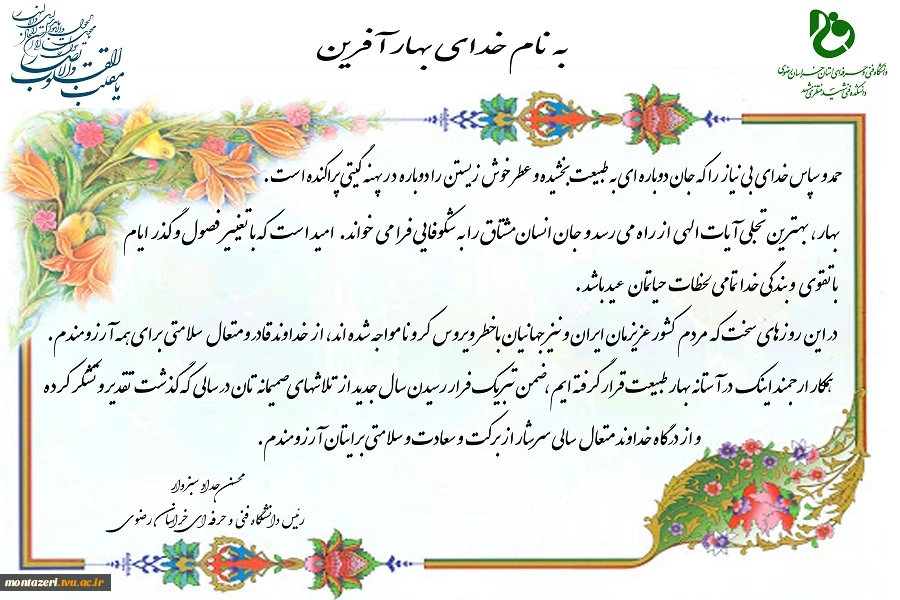 به نام خدای بهار آفرین
یا مقلب القلوب والابصار
دانشگاه فنی و حرفه ای استان خراسان رضوی
دانشکده فنی شهید منتظری مشهد
حمد و سپاس خدای بی نیاز را که جان دوباره ای به طبیعت بخشیده و عطر خوش زیستن را دوباره در پهنه گیتی پراکنده است.
بهار، بهترین تجلی آیات الهی از راه می رسد و جان انسان مشتاق را به شکوفایی فرا می خواند. امید است که با تغییر فصول و گذر ایام
با تقوی و بندگی خدا تمامی لحظات حیاتمان عید باشد.
در این روزهای سخت که مردم کشور عزیزمان ایران و نیز جهانیان با خطر ویروس کرونا مواجه شده اند، از خداوند قادر و متعال سلامتی برای همه آرزومندم.
همکار ارجمند اینک در آستانه بهار طبیعت قرار گرفته ایم، ضمن تبریک فرا رسیدن سال جدید از تلاشهای صمیمانه تان در سالی که گذشت تقدیر و تشکر کرده
و از درگاه خداوند متعال سالی سرشار از برکت و سعادت و سلامتی برایتان آرزومندم.
محسن حداد سبزوار
رئیس دانشگاه فنی و حرفه ای خراسان رضوی
montazeri.tvu.ac.ir